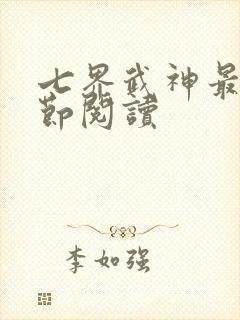 七界武神最
節閱讀
李如强